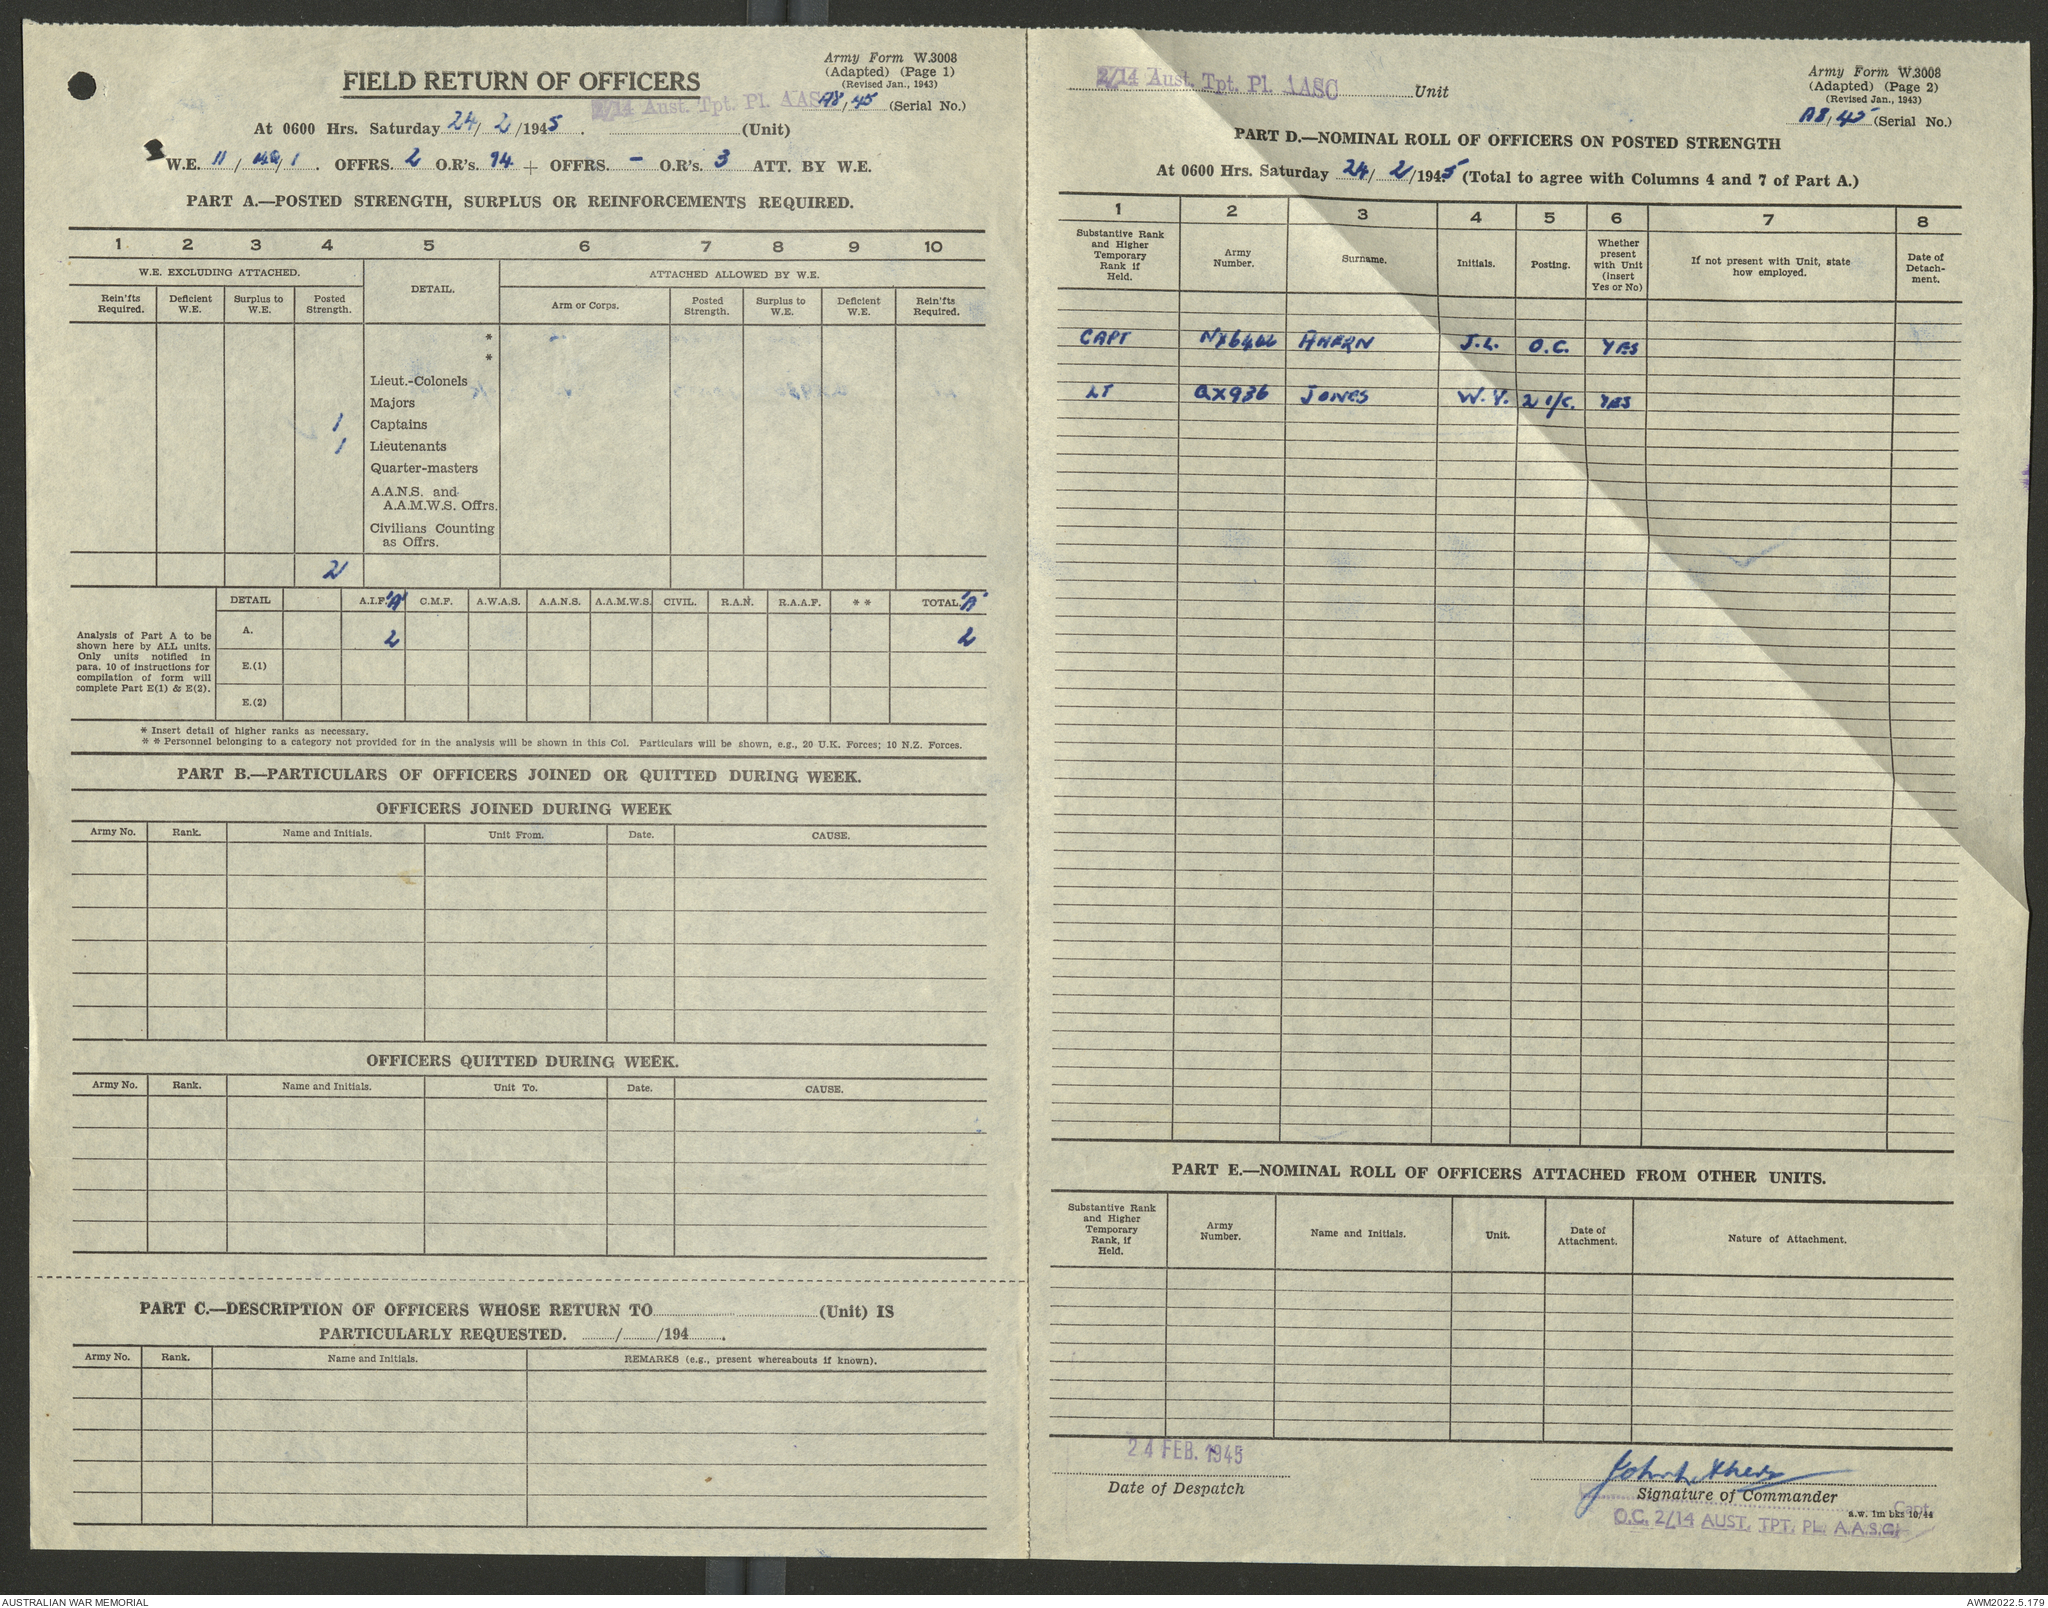 Army Form W.3008
(Adapted) (Page 1)
(Revised Jan., 1943)
FIELD RETURN OF OFFICERS
2/14 Aust. Tpt. Pl. AASC
A8/45 (Serial No.)
At 0600 Hrs. Saturday 24/2/1945. (Unit)
W.E. 11/ /1. OFFRS. 2 O.R's. 94 + OFFRS. – O.R's. 3 ATT. BY W.E.
PART A.—POSTED STRENGTH, SURPLUS OR REINFORCEMENTS REQUIRED.
1 2 3 4 5 6 7 8 9 10
W.E. EXCLUDING ATTACHED. DETAIL. ATTACHED ALLOWED BY W.E.
Rein'fts Required. Deficient W.E. Surplus to W.E. Posted Strength. Arm or Corps. Posted Strength. Surplus to W.E. Deficient W.E. Rein'fts Required.
*
*
Lieut.-Colonels
Majors
1 Captains
1 Lieutenants
Quarter-masters
A.A.N.S. and
A.A.M.W.S. Offrs.
Civilians Counting
as Offrs.
2
DETAIL A.I.F. 'A' C.M.F. A.W.A.S. A.A.N.S. A.A.M.W.S. CIVIL. R.A.N. R.A.A.F. ** TOTAL. 'A'
A. 2 2
E.(1)
E.(2)
Analysis of Part A to be
shown here by ALL units.
Only units notified in
para. 10 of instructions for
compilation of form will
complete Part E(1) & E(2).
* Insert detail of higher ranks as necessary.
** Personnel belonging to a category not provided for in the analysis will be shown in this Col. Particulars will be shown, e.g., 20 U.K. Forces; 10 N.Z. Forces.
PART B.—PARTICULARS OF OFFICERS JOINED OR QUITTED DURING WEEK.
OFFICERS JOINED DURING WEEK
Army No. Rank. Name and Initials. Unit From. Date. CAUSE.
OFFICERS QUITTED DURING WEEK.
Army No. Rank. Name and Initials. Unit To. Date. CAUSE.
PART C.—DESCRIPTION OF OFFICERS WHOSE RETURN TO (Unit) IS
PARTICULARLY REQUESTED. / /194 .
Army No. Rank. Name and Initials. REMARKS (e.g., present whereabouts if known).
2/14 Aust. Tpt. Pl. AASC Unit
Army Form W.3008
(Adapted) (Page 2)
(Revised Jan., 1943)
A8/45 (Serial No.)
PART D.—NOMINAL ROLL OF OFFICERS ON POSTED STRENGTH
At 0600 Hrs. Saturday 24/2/1945 (Total to agree with Columns 4 and 7 of Part A.)
1 2 3 4 5 6 7 8
Substantive Rank and Higher Temporary Rank if Held. Army Number. Surname. Initials. Posting. Whether present with Unit (insert Yes or No) If not present with Unit, state how employed. Date of Detach-ment.
CAPT NX6466 AHERN J.L. O.C. YES
LT QX936 JONES W.Y. 2 i/c. YES
PART E.—NOMINAL ROLL OF OFFICERS ATTACHED FROM OTHER UNITS.
Substantive Rank and Higher Temporary Rank, if Held. Army Number. Name and Initials. Unit. Date of Attachment. Nature of Attachment.
24 FEB. 1945
Date of Despatch
John L Ahern
Signature of Commander
Capt.
a.w. 1m bks 10/44
O.C. 2/14 AUST. TPT. PL. A.A.S.C.
AUSTRALIAN WAR MEMORIAL
AWM2022.5.179